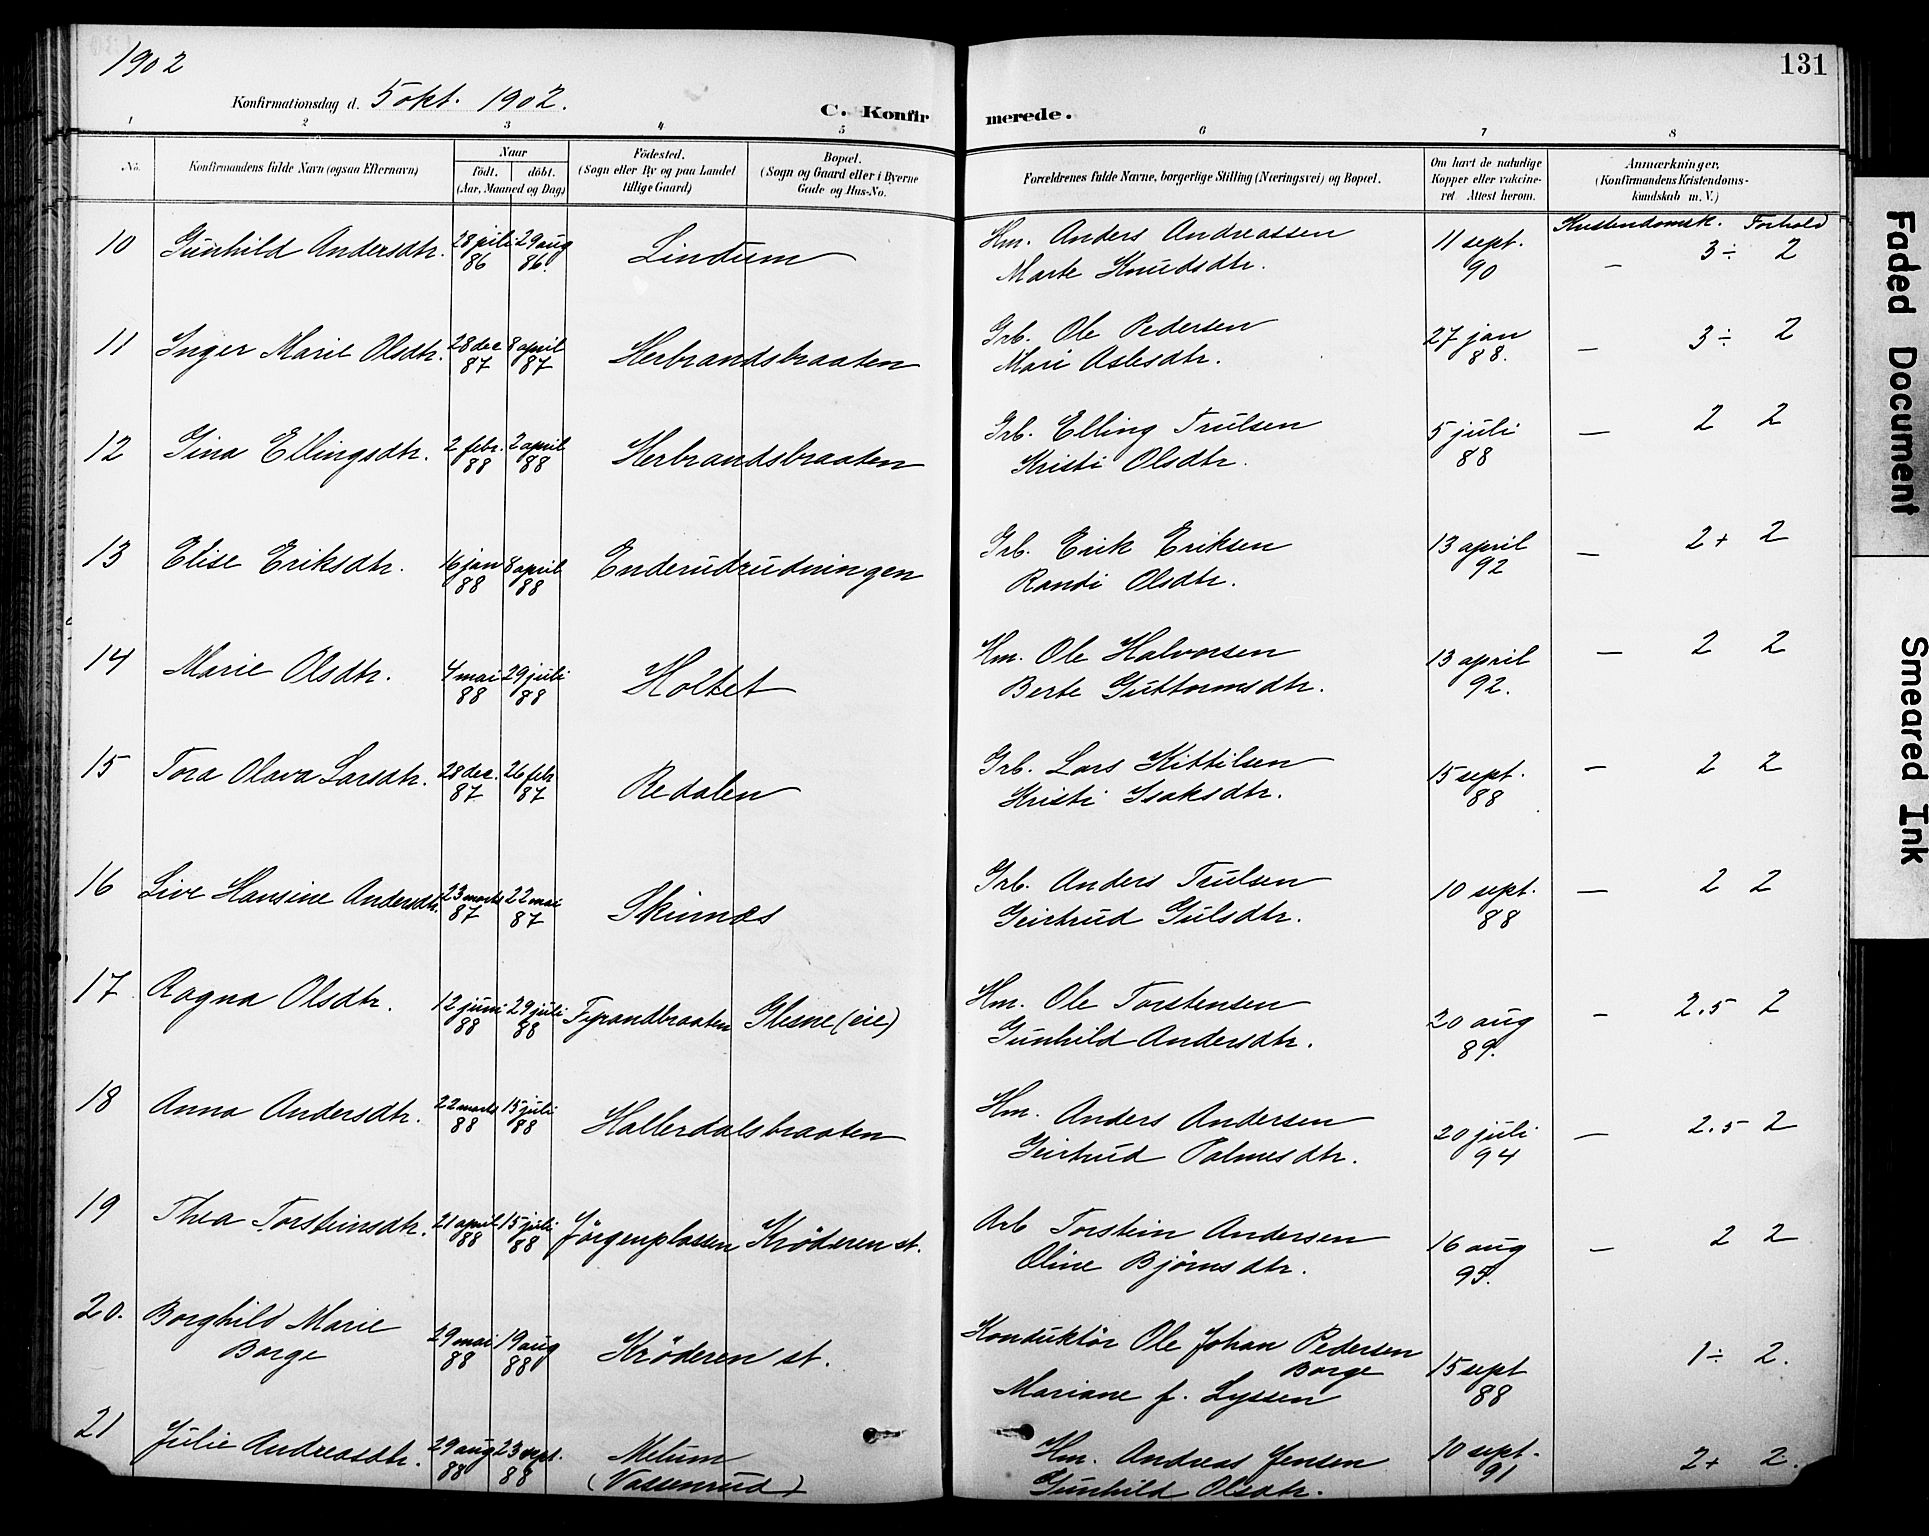 1902
131
Konfirmationsdag d. 5 okt. 1902.
C. Konfirmerede.
1 2 3 4 5 6 7 8
No. Konfirmandens fulde Navn (ogsaa Efternavn) Naar Födested. Bopæl. Forældrenes fulde Navne, borgerlige Stilling (Næringsvei) og Bopæl. Om havt de naturlige Anmærkninger.
födt. döbt. (Sogn eller By og paa Landet (Sogn og Gaard eller i Byerne Kopper eller vakcine- (Konfirmandens Kristendoms-
(Aar, Maaned og Dag) tillige Gaard) Gade og Hus-No. ret Attest herom. kundskab m. V.)
Kristendomsk. Forhold
10 Gunhild Andersdtr. 28 juli 29 aug Lindum Hm. Anders Andreassen 11 sept. – 3÷ 2
86 86. Marte Knudsdtr. 90
11 Inger Marie Olsdtr. 28 dec 8 april Herbrandsbraaten Grb. Ole Pedersen 27 jan – 3÷ 2
87 87 Mari Aslesdtr. 88.
12 Gina Ellingsdtr. 2 febr. 2 april Herbrandsbraaten Grb. Elling Trulsen 5 juli – 2 2
88 88 Kristi Olsdtr. 88
13 Elise Eriksdtr. 16 jan 8 april Enderudrudningen Grb. Erik Eriksen 13 april – 2+ 2
88 88 Randi Olsdtr. 92
14 Marie Olsdtr. 4 mai 29 juli Holtet Hm. Ole Halvorsen 13 april – 2 2
88 88 Berte Guttormsdtr. 92.
15 Tora Olava Larsdtr. 28 dec. 26 febr Redalen Grb. Lars Kittilsen 15 sept. – 2 2
87 87 Kristi Isaksdtr. 88
16 Live Hansine Andersdtr. 23 marts 22 mai Skinnes Grb. Anders Trulsen 10 sept. – 2 2
87 87 Geirtrud Gulsdtr. 88
17 Ragna Olsdtr. 12 juni 29 juli Fyrandbraaten Glesne (eie) Hm. Ole Torstensen 20 aug – 2.5 2
88 88 Gunhild Andersdtr. 89.
18 Anna Andersdtr. 22 marts 15 juli Hallerdalsbraaten Hm. Anders Andersen 20 juli – 2.5 2
88 88 Geirtrud Palmesdtr. 94
19 Thea Torsteinsdtr. 21 april 15 juli Jörgenplassen Kröderen st. Arb Torstein Andersen 16 aug – 2 2
88 88 Oline Bjørnsdtr. 95.
20. Borghild Marie 29 mai 19 aug Kröderen st. Konduktör Ole Johan Pedersen 15 sept 1÷ 2.
Borge 88 88 Borge 88
Mariane f. Lyssen
21 Julie Andreasdtr. 29 aug 23 sept. Melum Hm. Andreas Jensen 10 sept. 2+ 2.
88 88 (Vassenrud) Gunhild Olsdtr. 91
Faded Document
Smeared Ink